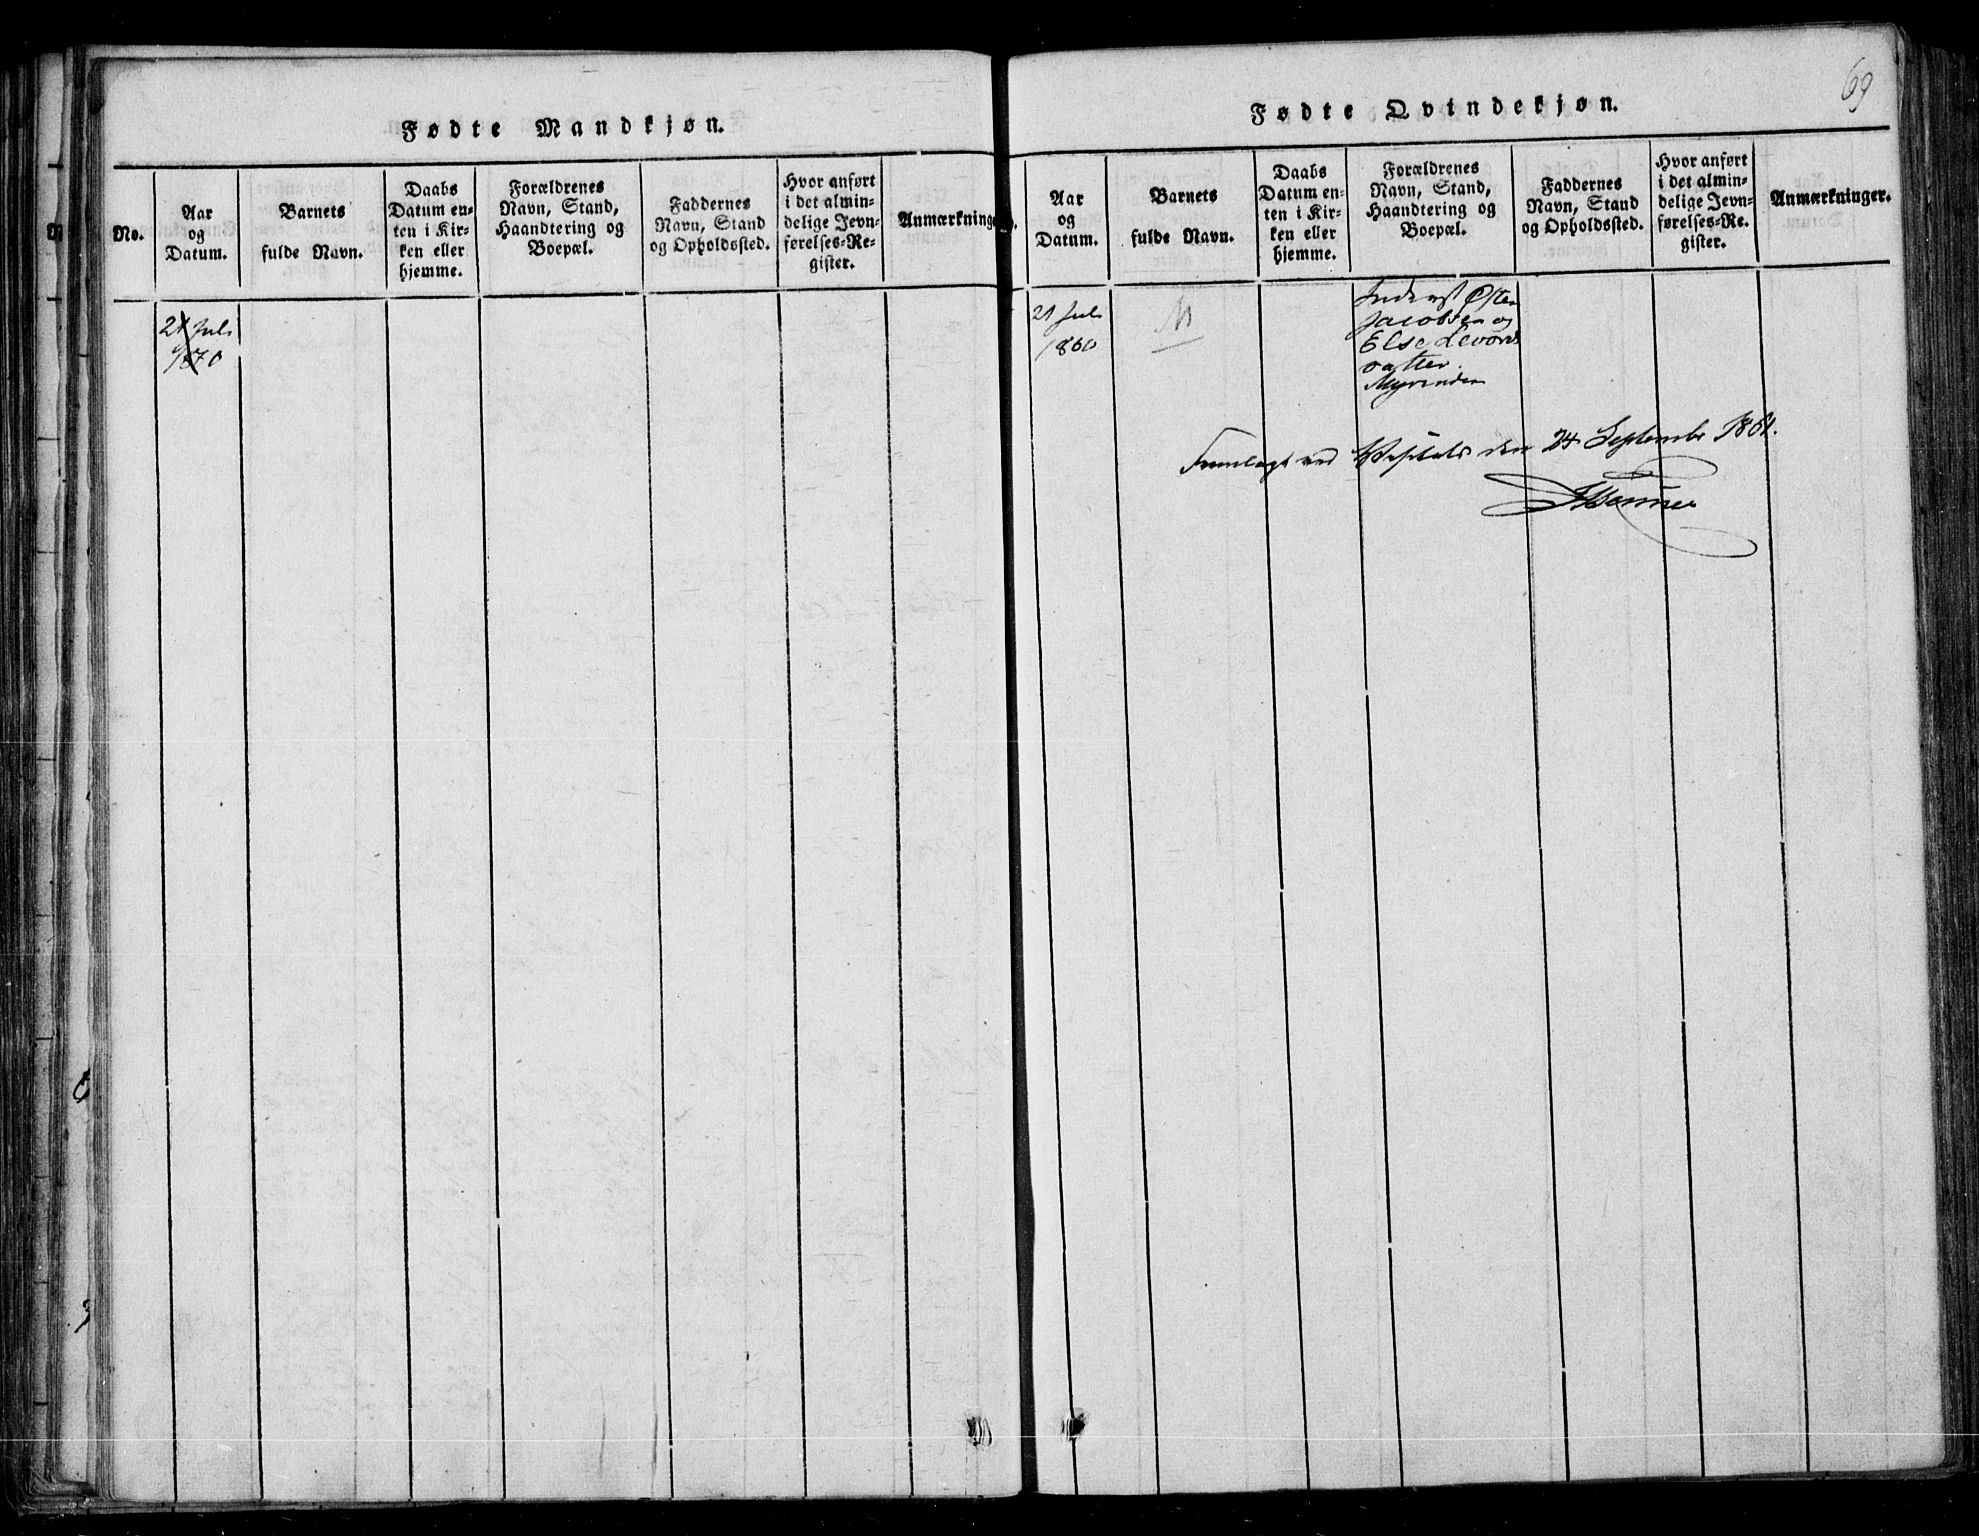 69
Fødte Mandkjøn.
No.
Aar
og
Datum.
Barnets
fulde Navn.
Daabs
Datum en-
ten i Kir-
ken eller
hjemme.
Forældrenes
Navn, Stand,
Haandtering og
Boepæl.
Faddernes
Navn, Stand
og Opholdssted.
Hvor anført
i det almin-
delige Jevn-
førelses-Re-
gister.
Anmærkninge
21 Juli
1870
Fødte Qvindekjøn.
Aar
og
Datum.
Barnets
fulde Navn.
Daabs
Datum en-
ten i Kir-
ken eller
hjemme.
Forældrenes
Navn, Stand,
Haandtering og
Boepæl.
Faddernes
Navn, Stand
og Opholdssted.
Hvor anført
i det almin-
delige Jevn-
førelses-Re-
gister.
Anmærkninger.
21 Juli
1860
Østen
Jacobsen og
Else
datter.
Fremlagt ved den 24 September 1861.